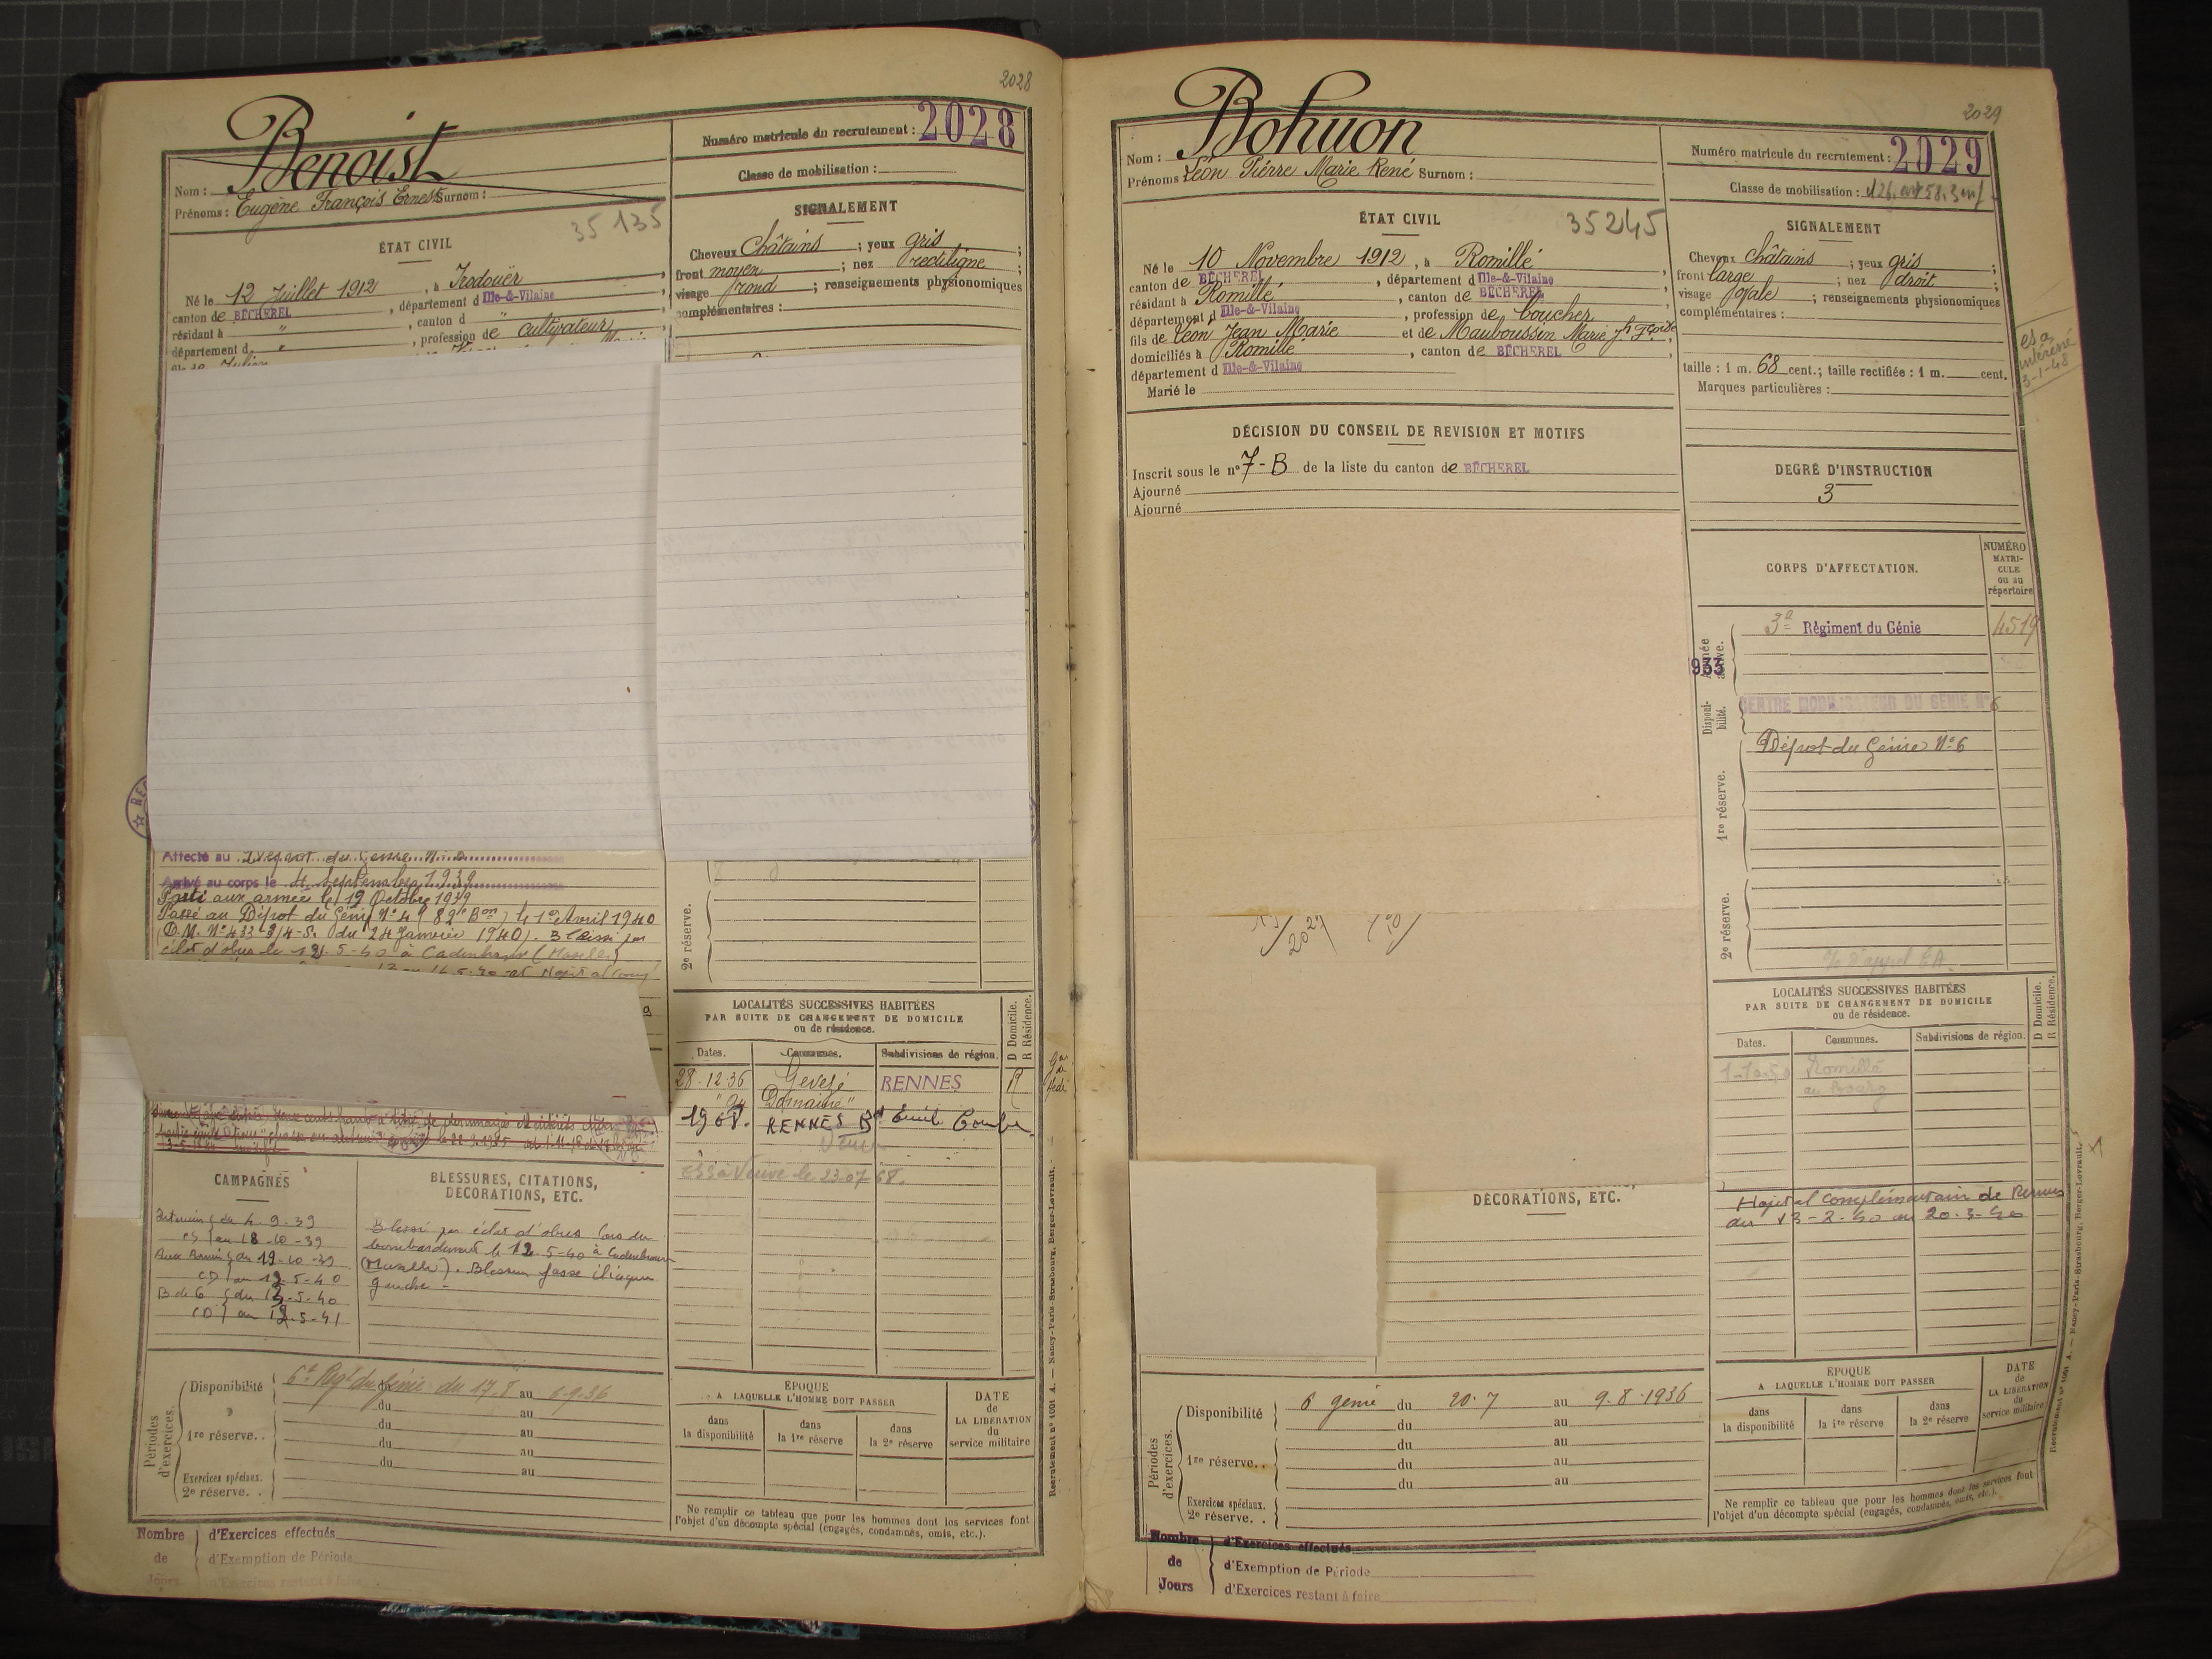 2028
Benoist
Nom :
Prénoms : Eugène François Ernest Surnom :
Numéro matricule du recrutement : 2028
Classe de mobilisation :
35135
ÉTAT CIVIL
Né le 12 Juillet 1912, à Irodouër
canton de BÉCHEREL, département d Ille-&-Vilaine
résidant à " , canton d "
département d " , profession de cultivateur
SIGNALEMENT
Cheveux Châtains ; yeux gris ;
front moyen ; nez rectiligne ;
visage rond ; renseignements physionomiques
complémentaires :
Affecté au Dépôt du Génie N°
Arrivé au corps le 4 Septembre 1939
Parti aux armées le 19 Octobre 1939
Passé au Dépôt du Génie N° 4 le 1er Avril 1940
(D.M. N° 433 du 24 Janvier 1940). Blessé par
éclat d'obus le 12-5-40 à (Moselle)
2e réserve.
LOCALITÉS SUCCESSIVES HABITÉES
PAR SUITE DE CHANGEMENT DE DOMICILE
ou de résidence.
D Domicile.
R Résidence.
Dates. Communes. Subdivisions de région.
28.12.36 Gévezé RENNES R
1968. RENNES Bd Emile Combes
ESS à Veuve le 23-07-68.
CAMPAGNES
Intérieur du 4-9-39
CS au 18-10-39
Aux Armées du 19-10-39
CD au 12-5-40
B de G du 13-5-40
CD au 12-5-41
BLESSURES, CITATIONS,
DÉCORATIONS, ETC.
Blessé par éclat d'obus lors du
bombardement le 12-5-40 à
(Moselle). Blessure fosse iliaque
gauche -
Périodes d'exercices.
Disponibilité 6e Rgt du Génie du 17-8 au 6-9-36
du au
1re réserve. . du au
du au
du au
Exercices spéciaux.
2e réserve. .
ÉPOQUE
A LAQUELLE L'HOMME DOIT PASSER
dans la disponibilité
dans la 1re réserve
dans la 2e réserve
DATE de LA LIBÉRATION du service militaire
Ne remplir ce tableau que pour les hommes dont les services font
l'objet d'un décompte spécial (engagés, condamnés, omis, etc.).
Nombre de Jours
d'Exercices effectués
d'Exemption de Période
d'Exercices restant à faire
Recrutement n° 1051 A. — Nancy-Paris-Strasbourg, Berger-Levrault.
2029
Bohuon
Nom :
Prénoms Léon Pierre Marie René Surnom :
Numéro matricule du recrutement : 2029
Classe de mobilisation :
35245
ÉTAT CIVIL
Né le 10 Novembre 1912, à Romillé
canton de BÉCHEREL, département d Ille-&-Vilaine
résidant à Romillé, canton de BÉCHEREL
département d Ille-&-Vilaine, profession de boucher
fils de Léon Jean Marie et de Mauboussin Marie Jh Fçoise
domiciliés à Romillé, canton de BÉCHEREL
département d Ille-&-Vilaine
Marié le
SIGNALEMENT
Cheveux châtains ; yeux gris ;
front large ; nez droit ;
visage ovale ; renseignements physionomiques
complémentaires :
taille : 1 m. 68 cent.; taille rectifiée : 1 m. cent.
Marques particulières :
3-1-48
DÉCISION DU CONSEIL DE REVISION ET MOTIFS
Inscrit sous le n° 7-B de la liste du canton de BÉCHEREL
Ajourné
Ajourné
DEGRÉ D'INSTRUCTION
3
CORPS D'AFFECTATION.
NUMÉRO MATRICULE ou au répertoire
3e Régiment du Génie 4519
933
Armée active.
Disponibilité.
CENTRE MOBILISATEUR DU GÉNIE N° 6
Dépôt du Génie N° 6
1re réserve.
2e réserve.
2029
LOCALITÉS SUCCESSIVES HABITÉES
PAR SUITE DE CHANGEMENT DE DOMICILE
ou de résidence.
D Domicile.
R Résidence.
Dates. Communes. Subdivisions de région.
Romillé
au bourg
Hopital Complémentaire de Rennes
du 13-2-40 au 20-3-40
DÉCORATIONS, ETC.
Périodes d'exercices.
Disponibilité 6 génie du 20.7 au 9.8.1936
du au
1re réserve. . du au
du au
du au
Exercices spéciaux.
2e réserve. .
ÉPOQUE
A LAQUELLE L'HOMME DOIT PASSER
dans la disponibilité
dans la 1re réserve
dans la 2e réserve
DATE de LA LIBÉRATION du service militaire
Ne remplir ce tableau que pour les hommes dont les services font
l'objet d'un décompte spécial (engagés, condamnés, omis, etc.).
Nombre de Jours
d'Exercices effectués
d'Exemption de Période
d'Exercices restant à faire
Recrutement n° 1051 A. — Nancy-Paris-Strasbourg, Berger-Levrault.